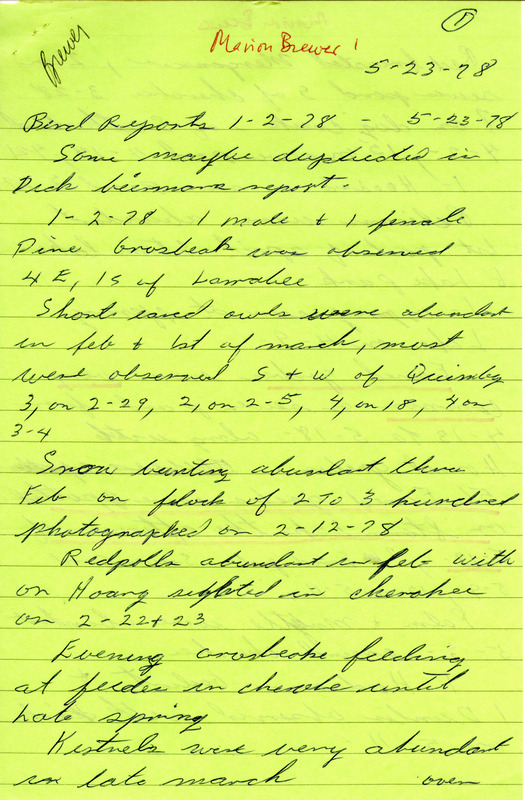 1
Brewer
Marion Brewer 1
5-23-78
Bird Reports 1-2-78 - 5-23-78
Some maybe duplicated in
Dick Biermans report.
1-2-78 1 male + 1 female
Pine Grosbeak was observed
4 E, 1 S of Larrabee
Short eared owls were abundant
in feb + 1st of march, most
were observed S + W of Quimby
3, on 2-29, 2, on 2-5, 4, on 18, 4 on
3-4
Snow bunting abundant thru
Feb on flock of 2 To 3 hundred
photographed on 2-12-78
Redpolls abundant in feb with
on Hoary in cherokee
on 2-22+23
Evening Grosbeake feeding
at feeder in until
late spring
Kestrels were very abundant
in late march over